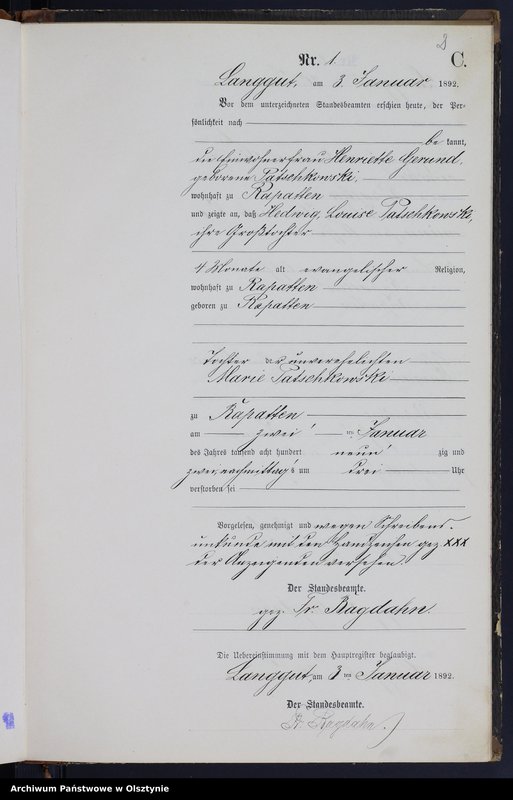 2
Nr. 1. C.
Langgut, am 3. Januar 1892.
Vor dem unterzeichneten Standesbeamten erschien heute, der Per-
sönlichkeit nach
bekannt,
die Einwohnerfrau Henriette Gerund,
geborene Patschkowski,
wohnhaft zu Rapatten
und zeigte an, daß Hedwig Louise Patschkowski,
ihre Großtochter
4 Monate alt evangelischer Religion,
wohnhaft zu Rapatten
geboren zu Rapatten
Tochter der unverehelichten
Marie Patschkowski
zu Rapatten
am zwei ten Januar
des Jahres tausend acht hundert neun zig und
zwei, nachmittags um drei Uhr
verstorben sei
Vorgelesen, genehmigt und wegen Schreibens-
unkunde mit den Handzeichen gez. XXX
der Anzeigenden versehen.
Der Standesbeamte.
gez. Fr. Bagdahn.
Die Uebereinstimmung mit dem Hauptregister beglaubigt.
Langgut, am 3 ten Januar 1892.
Der Standesbeamte.
Bagdahn.
Archiwum Państwowe w Olsztynie